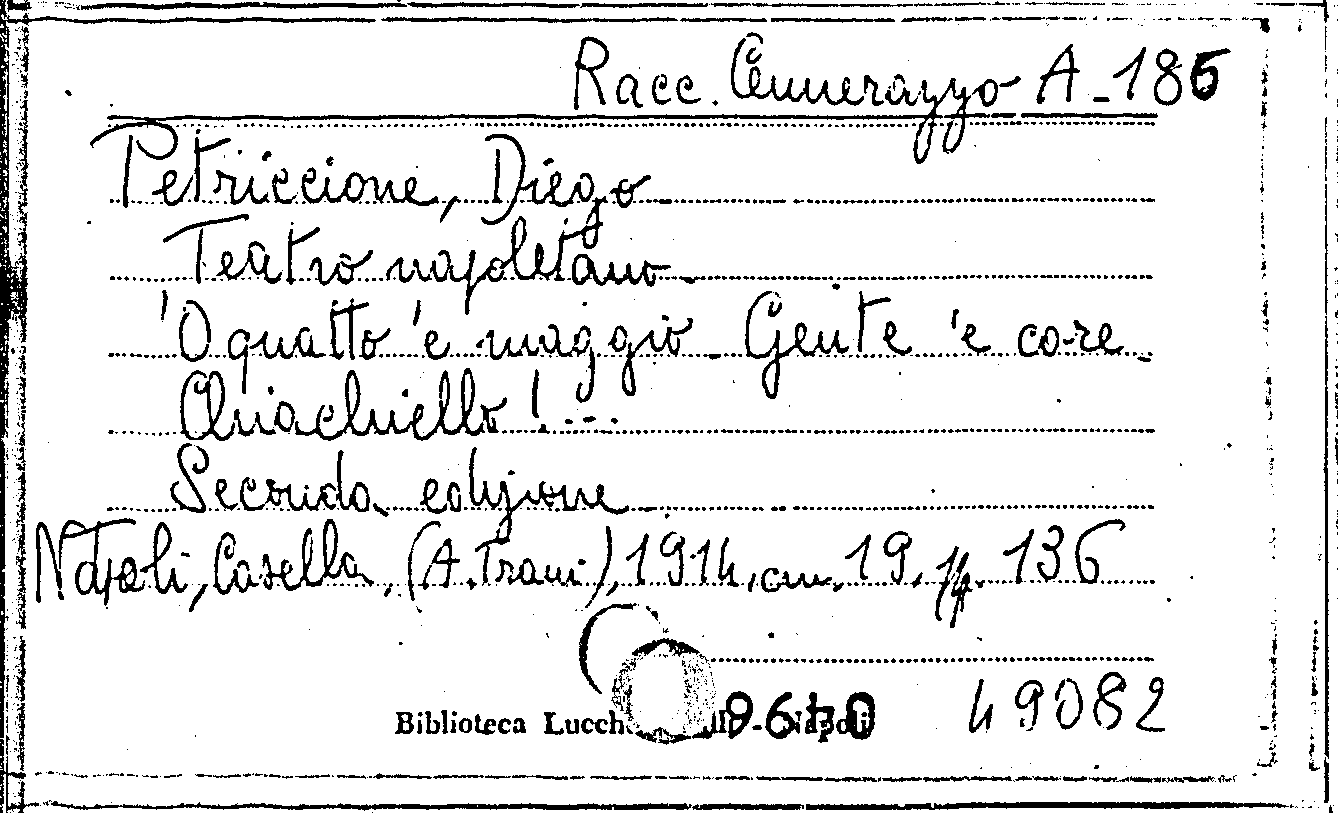 Racc. Cennerazzo A-186
Petriccione, Diego
Teatro napoletano -
'O quatto 'e maggio - Gente 'e core -
Quiachiello!...
Seconda edizione
Napoli, Casella, (A. Trani), 1914, cm. 19, pp. 136
49082
Biblioteca Napoli